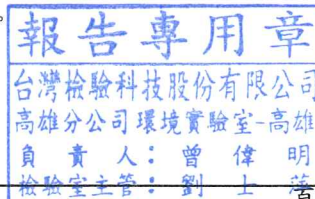 報告專用章
台灣檢驗科技股份有限公司
高雄分公司環境實驗室-高雄
負責人：曾偉明
檢驗室主管：劉上